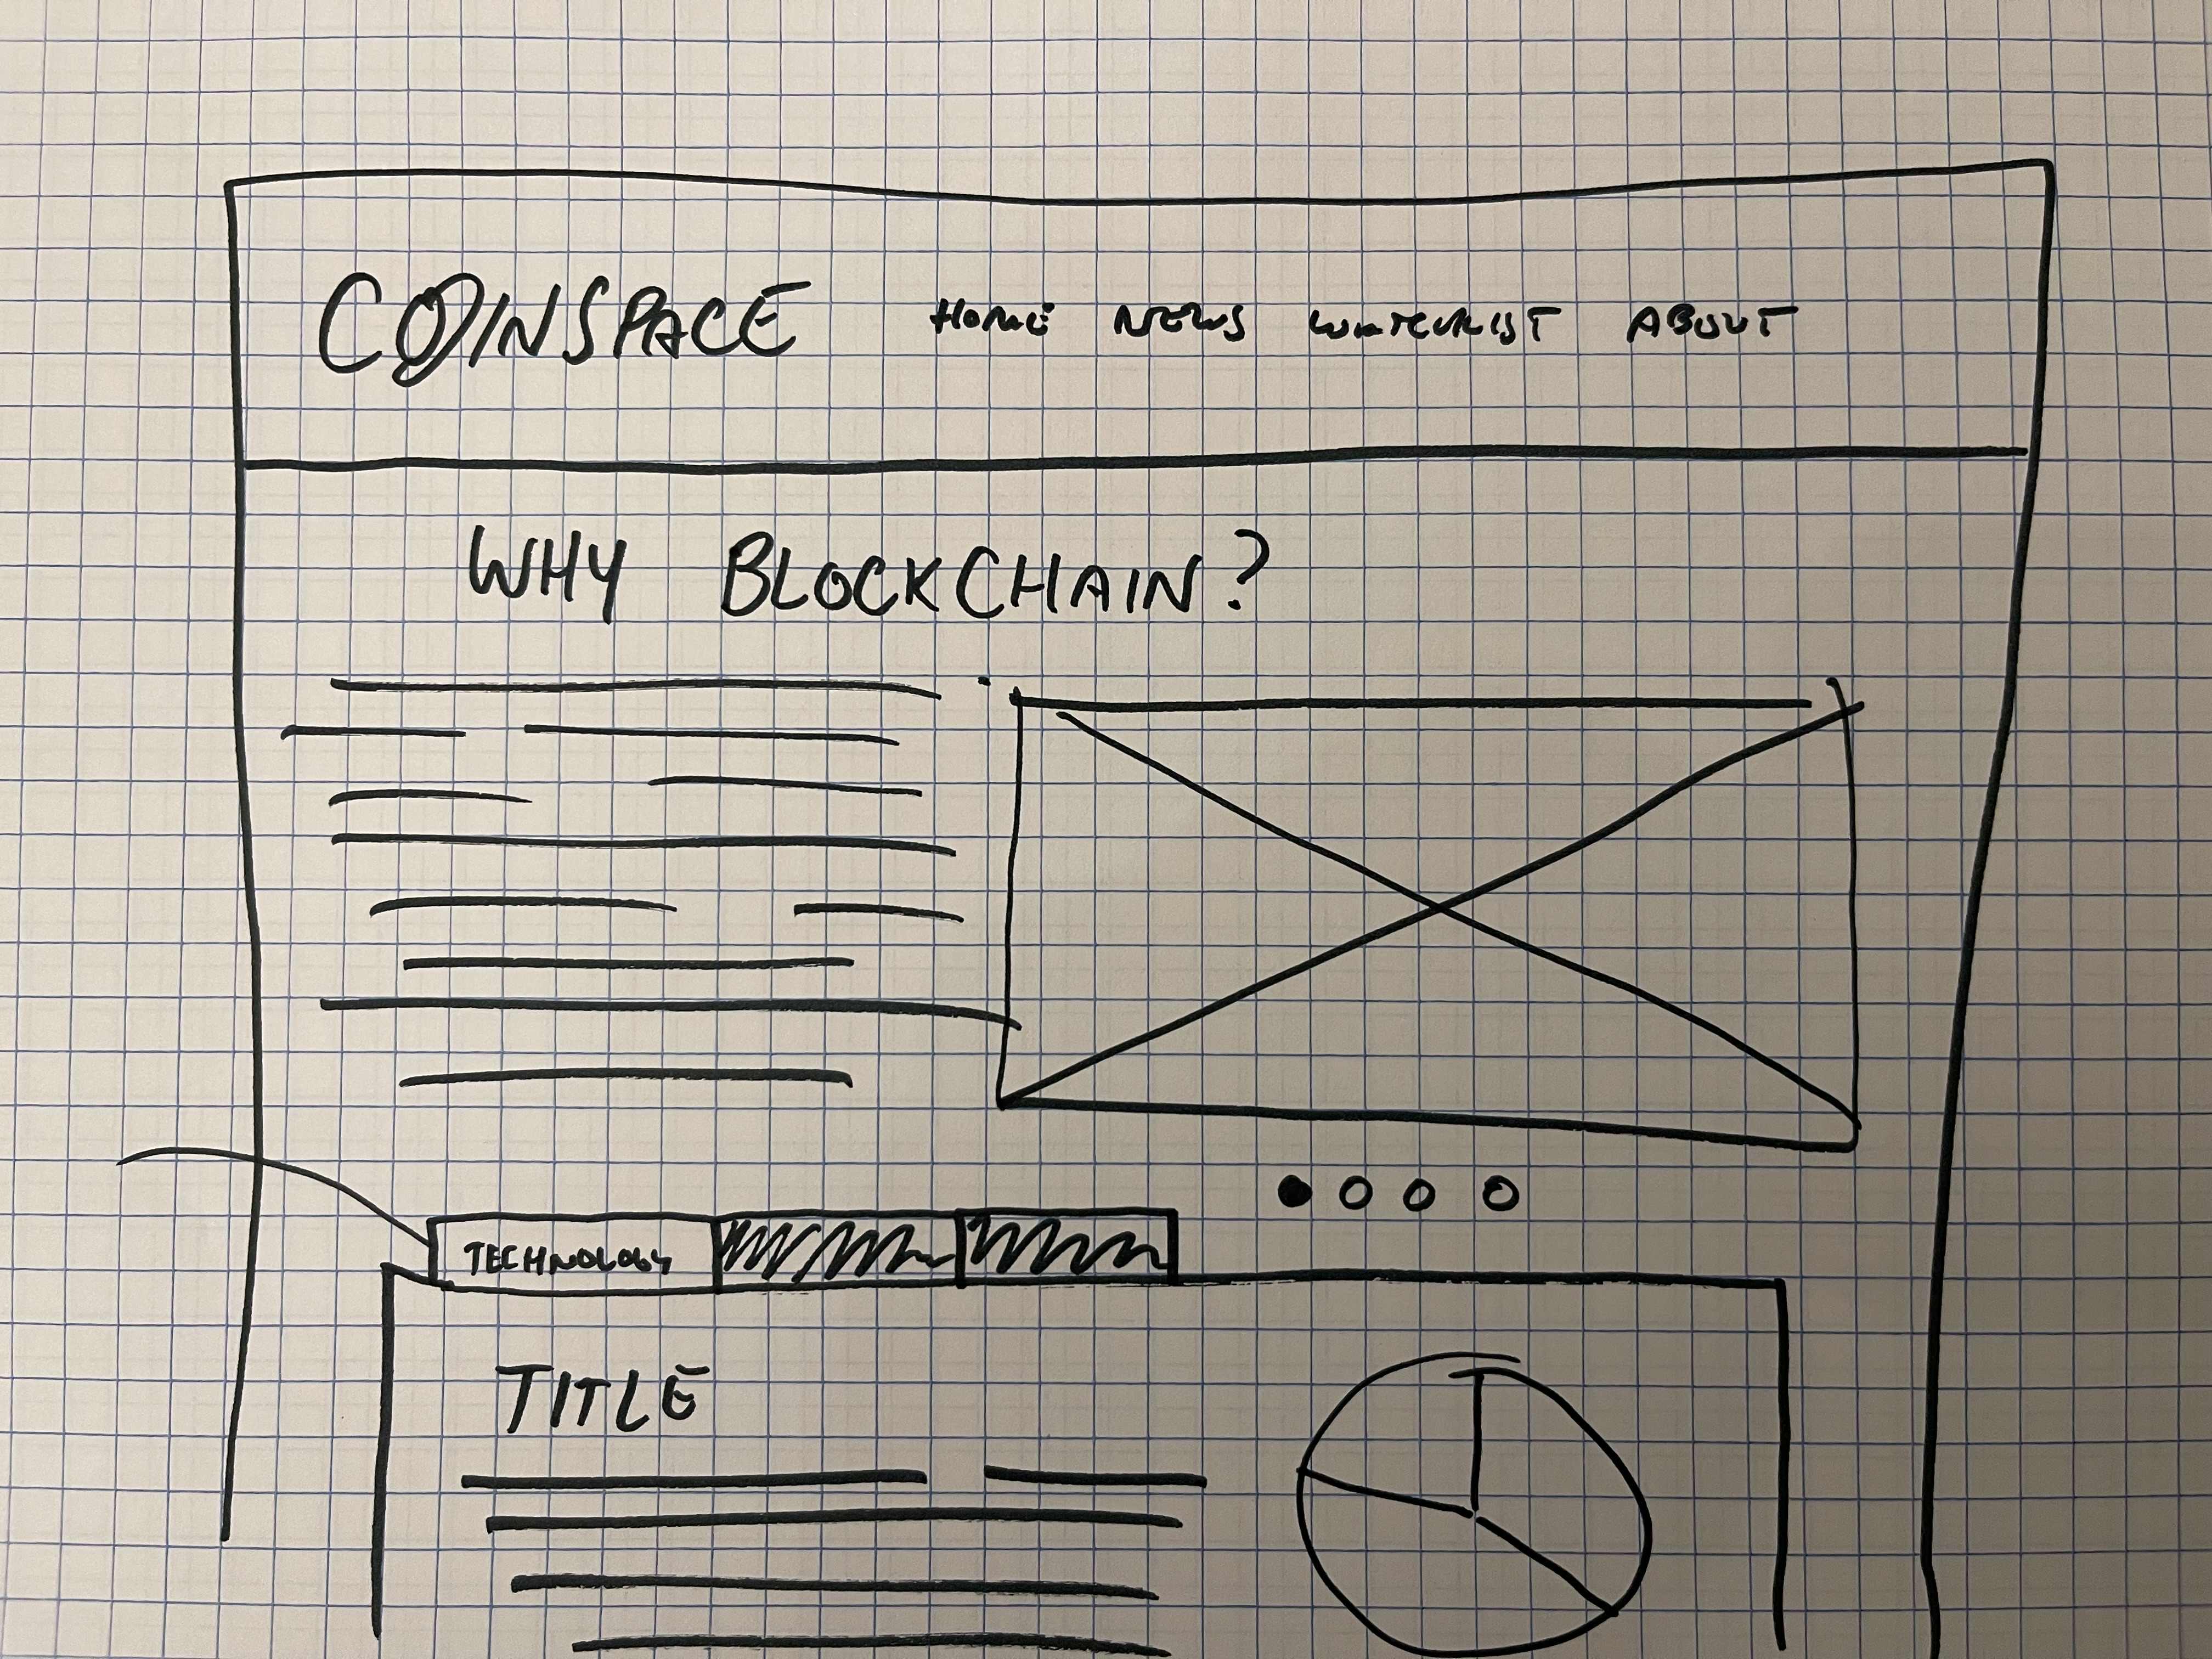 COINSPACE HOME NEWS WATCHLIST ABOUT
WHY BLOCKCHAIN?
TECHNOLOGY
TITLE